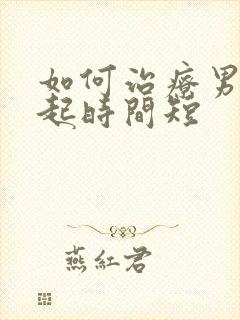 如何治疗男
起時間短
燕紅君